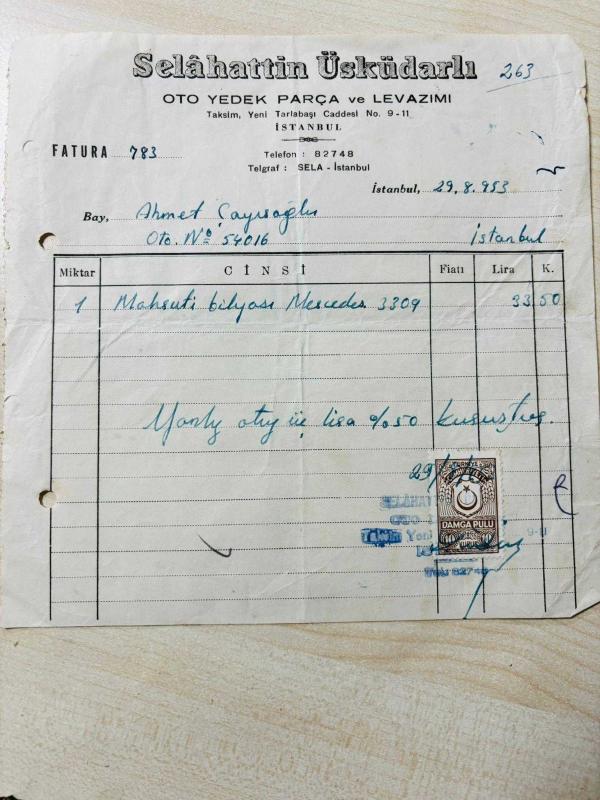 Selâhattin Üsküdarlı
263
OTO YEDEK PARÇA ve LEVAZIMI
Taksim, Yeni Tarlabaşı Caddesi No. 9-11
İSTANBUL
FATURA 783
Telefon : 82748
Telgraf : SELA - İstanbul
İstanbul, 29.8.953
Bay, Ahmet
Oto. No 54016 İstanbul
Miktar CİNSİ Fiatı Lira K.
1 Mahruti bilyası Mercedes 3309 33 50
otuz üç lira %50 kuruştur.
29
SELÂHAT
OTO
Taksim Yeni 9-11
DAMGA PULU
10 10
Tel: 82748